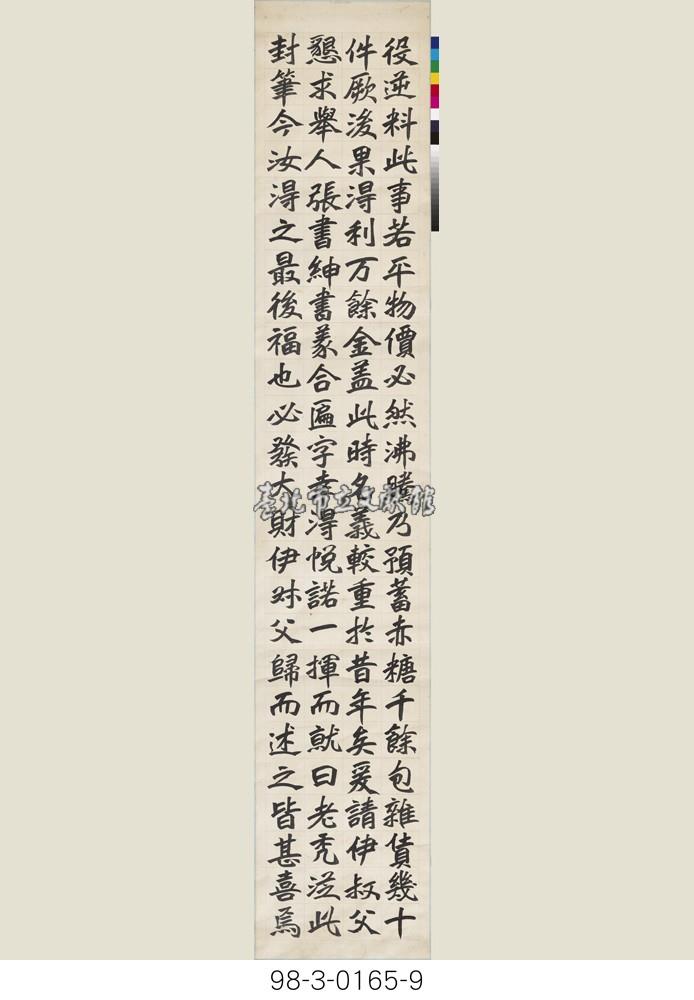 役逆料此事若平物價必然沸騰乃預蓄赤糖千餘包雜貨幾十
件厥後果得利万餘金盖此時名義較重於昔年矣爰請伊叔父
懇求舉人張書紳書豢合匾字幸得悅諾一揮而就曰老禿從此
封筆今汝得之最後福也必發大財伊叔父歸而述之皆甚喜焉
臺北市立文獻館
98-3-0165-9